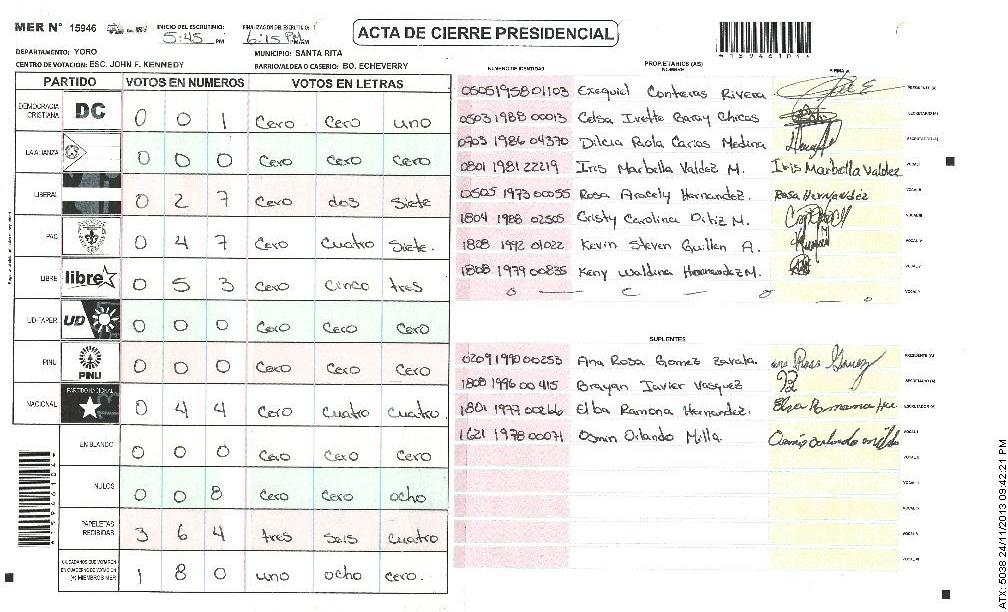 MER N° 15946
INICIO DEL ESCRUTINIO:
5:45 PM
FINALIZACION DEL ESCRUTINIO:
6:15 PM
ACTA DE CIERRE PRESIDENCIAL
DEPARTAMENTO: YORO
MUNICIPIO: SANTA RITA
CENTRO DE VOTACION: ESC. JOHN F. KENNEDY
BARRIO/ALDEA O CASERIO: BO. ECHEVERRY
PARTIDO VOTOS EN NUMEROS VOTOS EN LETRAS
DEMOCRACIA CRISTIANA DC 0 0 1 Cero Cero uno
LA ALIANZA 0 0 0 Cero Cero Cero
LIBERAL 0 2 7 Cero dos Siete
PAC 0 4 7 Cero Cuatro Siete.
LIBRE libre 0 5 3 Cero Cinco tres
UD-FAPER UD 0 0 0 Cero Cero Cero
PINU PINU 0 0 0 Cero Cero Cero
NACIONAL PARTIDO NACIONAL 0 4 4 Cero Cuatro Cuatro.
EN BLANCO 0 0 0 Cero Cero Cero
NULOS 0 0 8 Cero Cero ocho
PAPELETAS RECIBIDAS 3 6 4 tres Seis Cuatro
CIUDADANOS QUE VOTARON EN CUADERNO DE VOTACION (+) MIEMBROS MER 1 8 0 uno ocho Cero.
NUMERO DE IDENTIDAD
PROPIETARIOS (AS)
NOMBRE
FIRMA
0505195801103 Exequiel Contreras Rivera PRESIDENTE (A)
0503 1988 00013 Celsa Ivette Garay Chicas SECRETARIO (A)
0703 1986 04370 Dilcia Paola Carias Medina ESCRUTADOR (A)
0801 1981 22219 Iris Marbella Valdez M. Iris Marbella Valdez VOCAL I
0505 1973 00055 Rosa Aracely Hernandez. Rosa Hernandez VOCAL II
1804 1988 02505 Cristy Carolina Ortiz M. VOCAL III
1808 1992 01022 Kevin Steven Guillen A. VOCAL IV
1808 1979 00835 Keny Waldina Hernandez M. VOCAL V
SUPLENTES
0209 1990 00253 Ana Rosa Gomez Zavala. PRESIDENTE (A)
1808 1996 00415 Brayan Javier Vasquez SECRETARIO (A)
1801 1977 00266 Elba Ramona Hernandez. ESCRUTADOR (A)
1621 1978 00071 Osman Orlando Milla. VOCAL I
VOCAL II
VOCAL III
VOCAL IV
VOCAL V
ATX: 5038 24/11/2013 09:42:21 PM